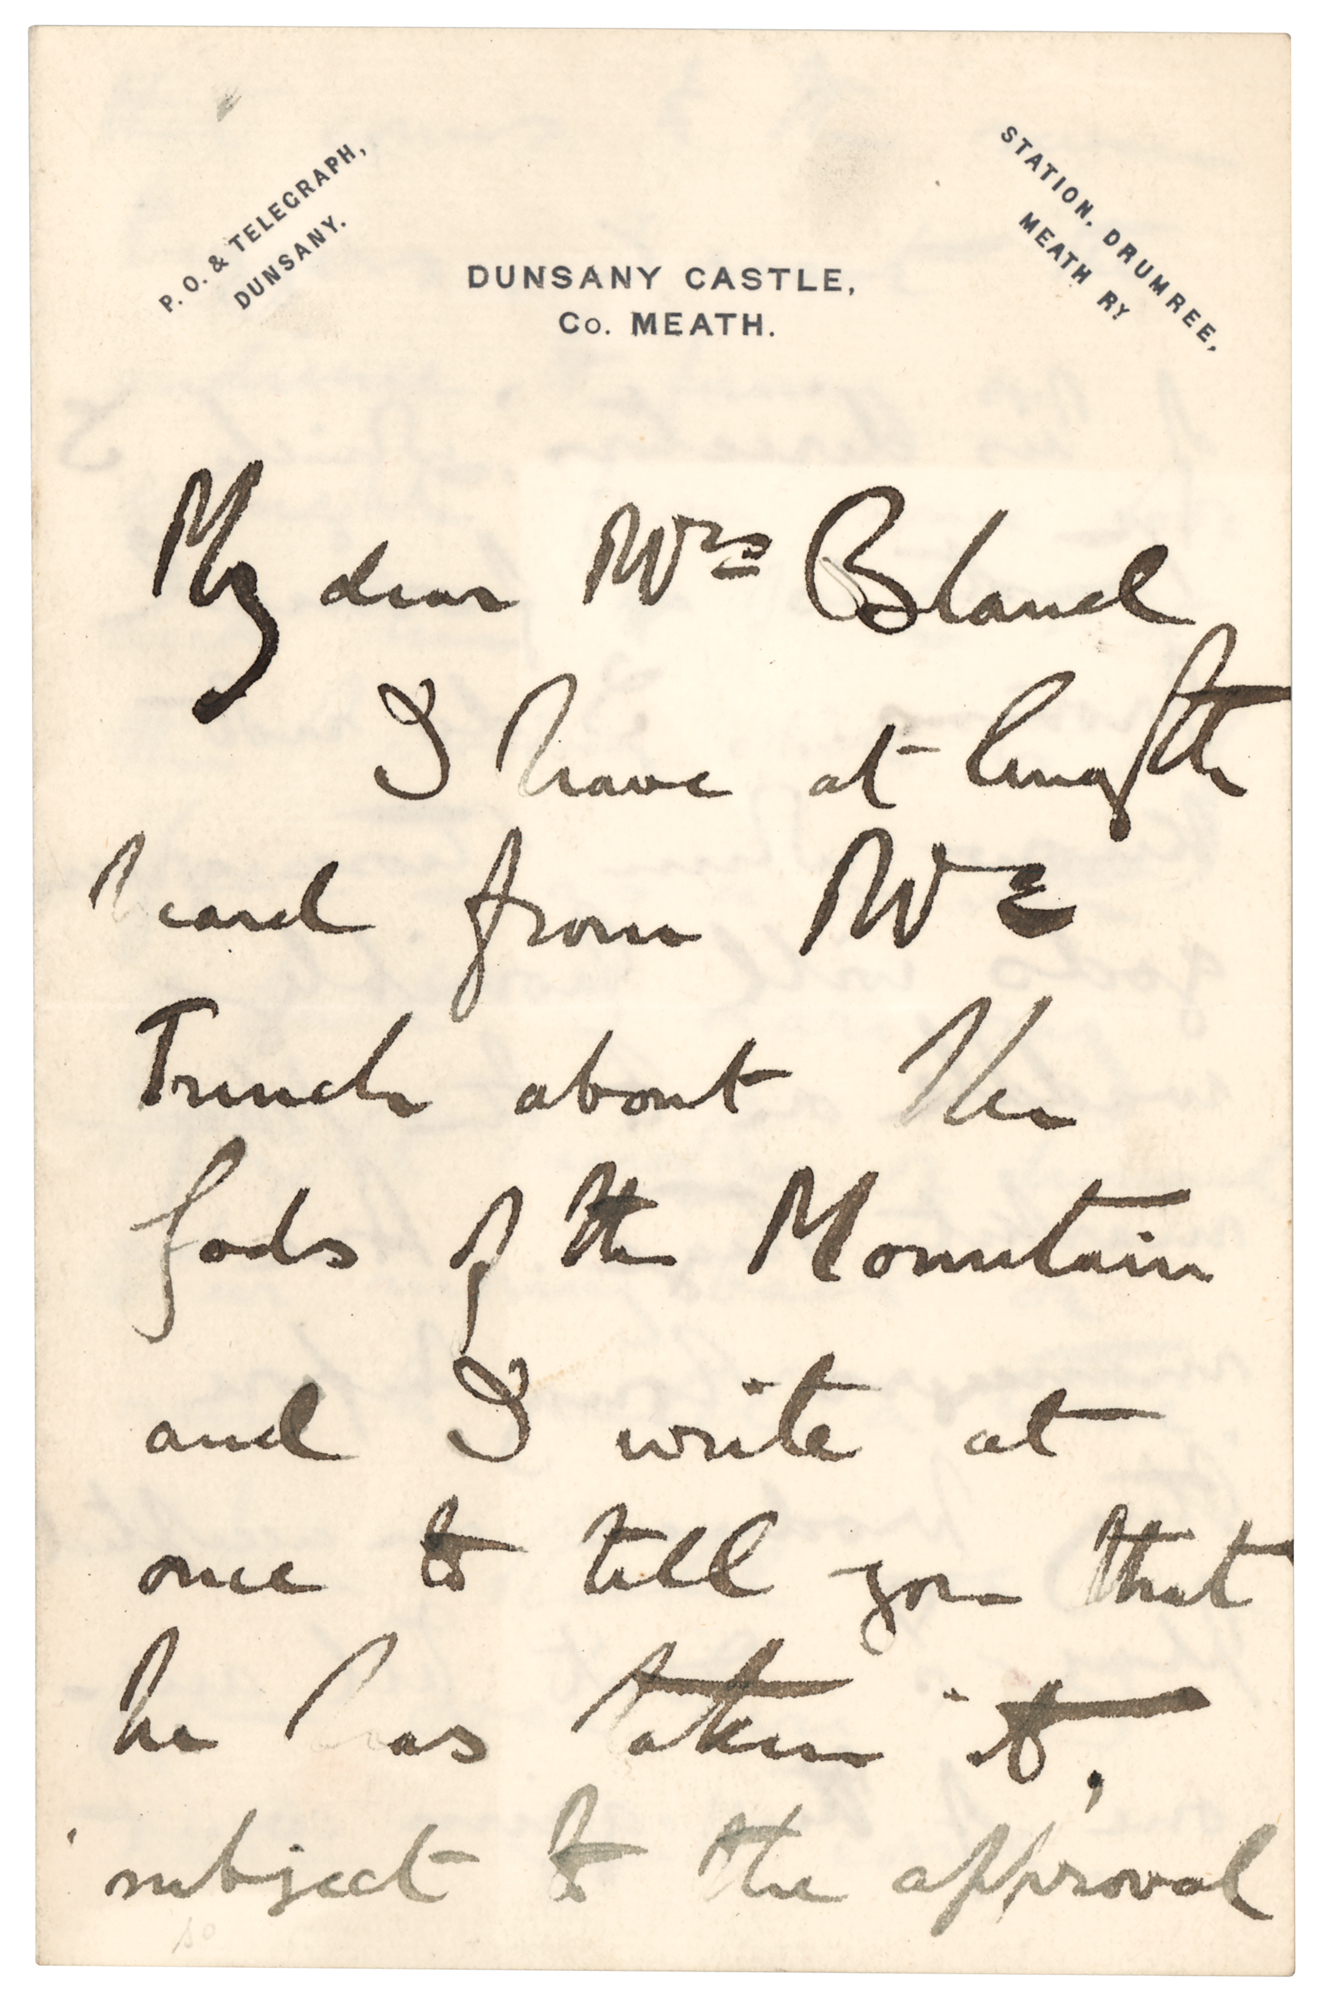 P. O. & TELEGRAPH,
DUNSANY.
STATION, DRUMREE,
MEATH RY
DUNSANY CASTLE,
Co. MEATH.
My dear Mrs Bland
I have at length
heard from Mr
Trench about The
Gods of the Mountain
and I write at
once to tell you that
he has taken it,
subject to the approval